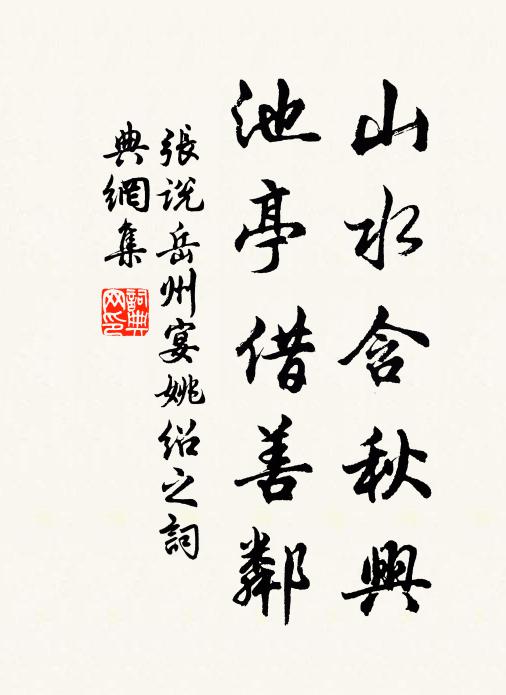 山水含秋興
池亭借善鄰
張說岳州宴姚紹之詞
典網集
詞典網印